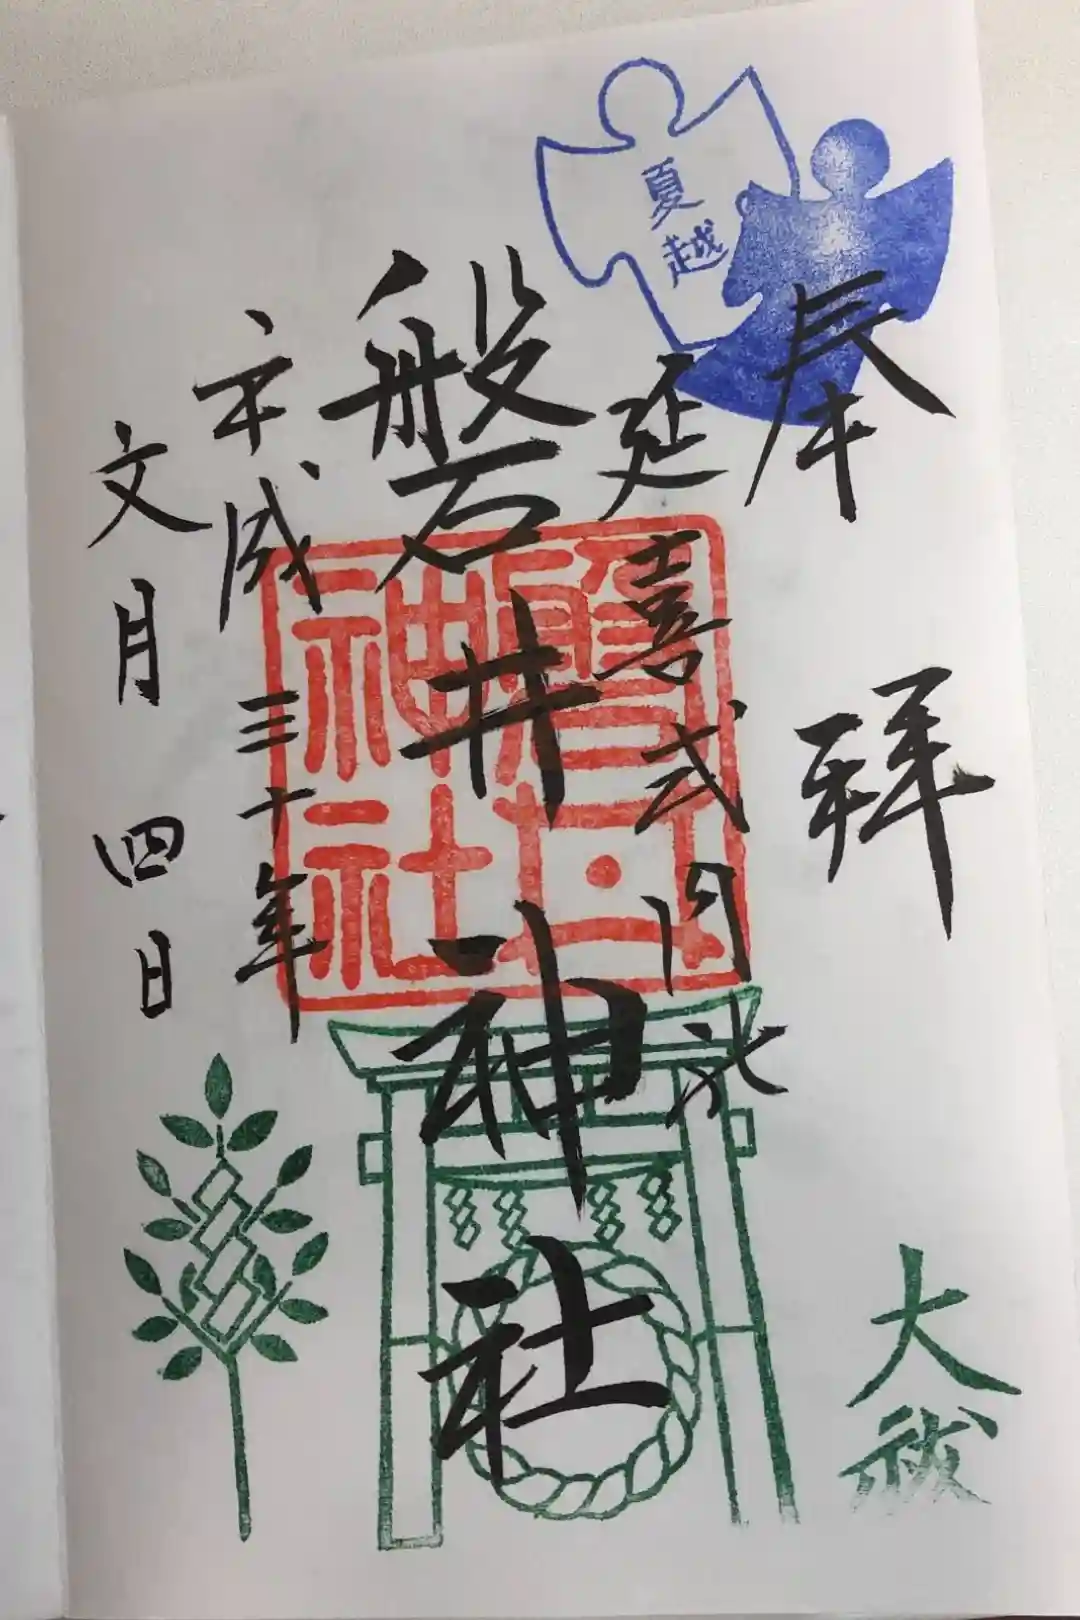 夏越
奉拝
延喜式内社
磐井神社
平成三十年
文月四日
磐井
神社
大祓